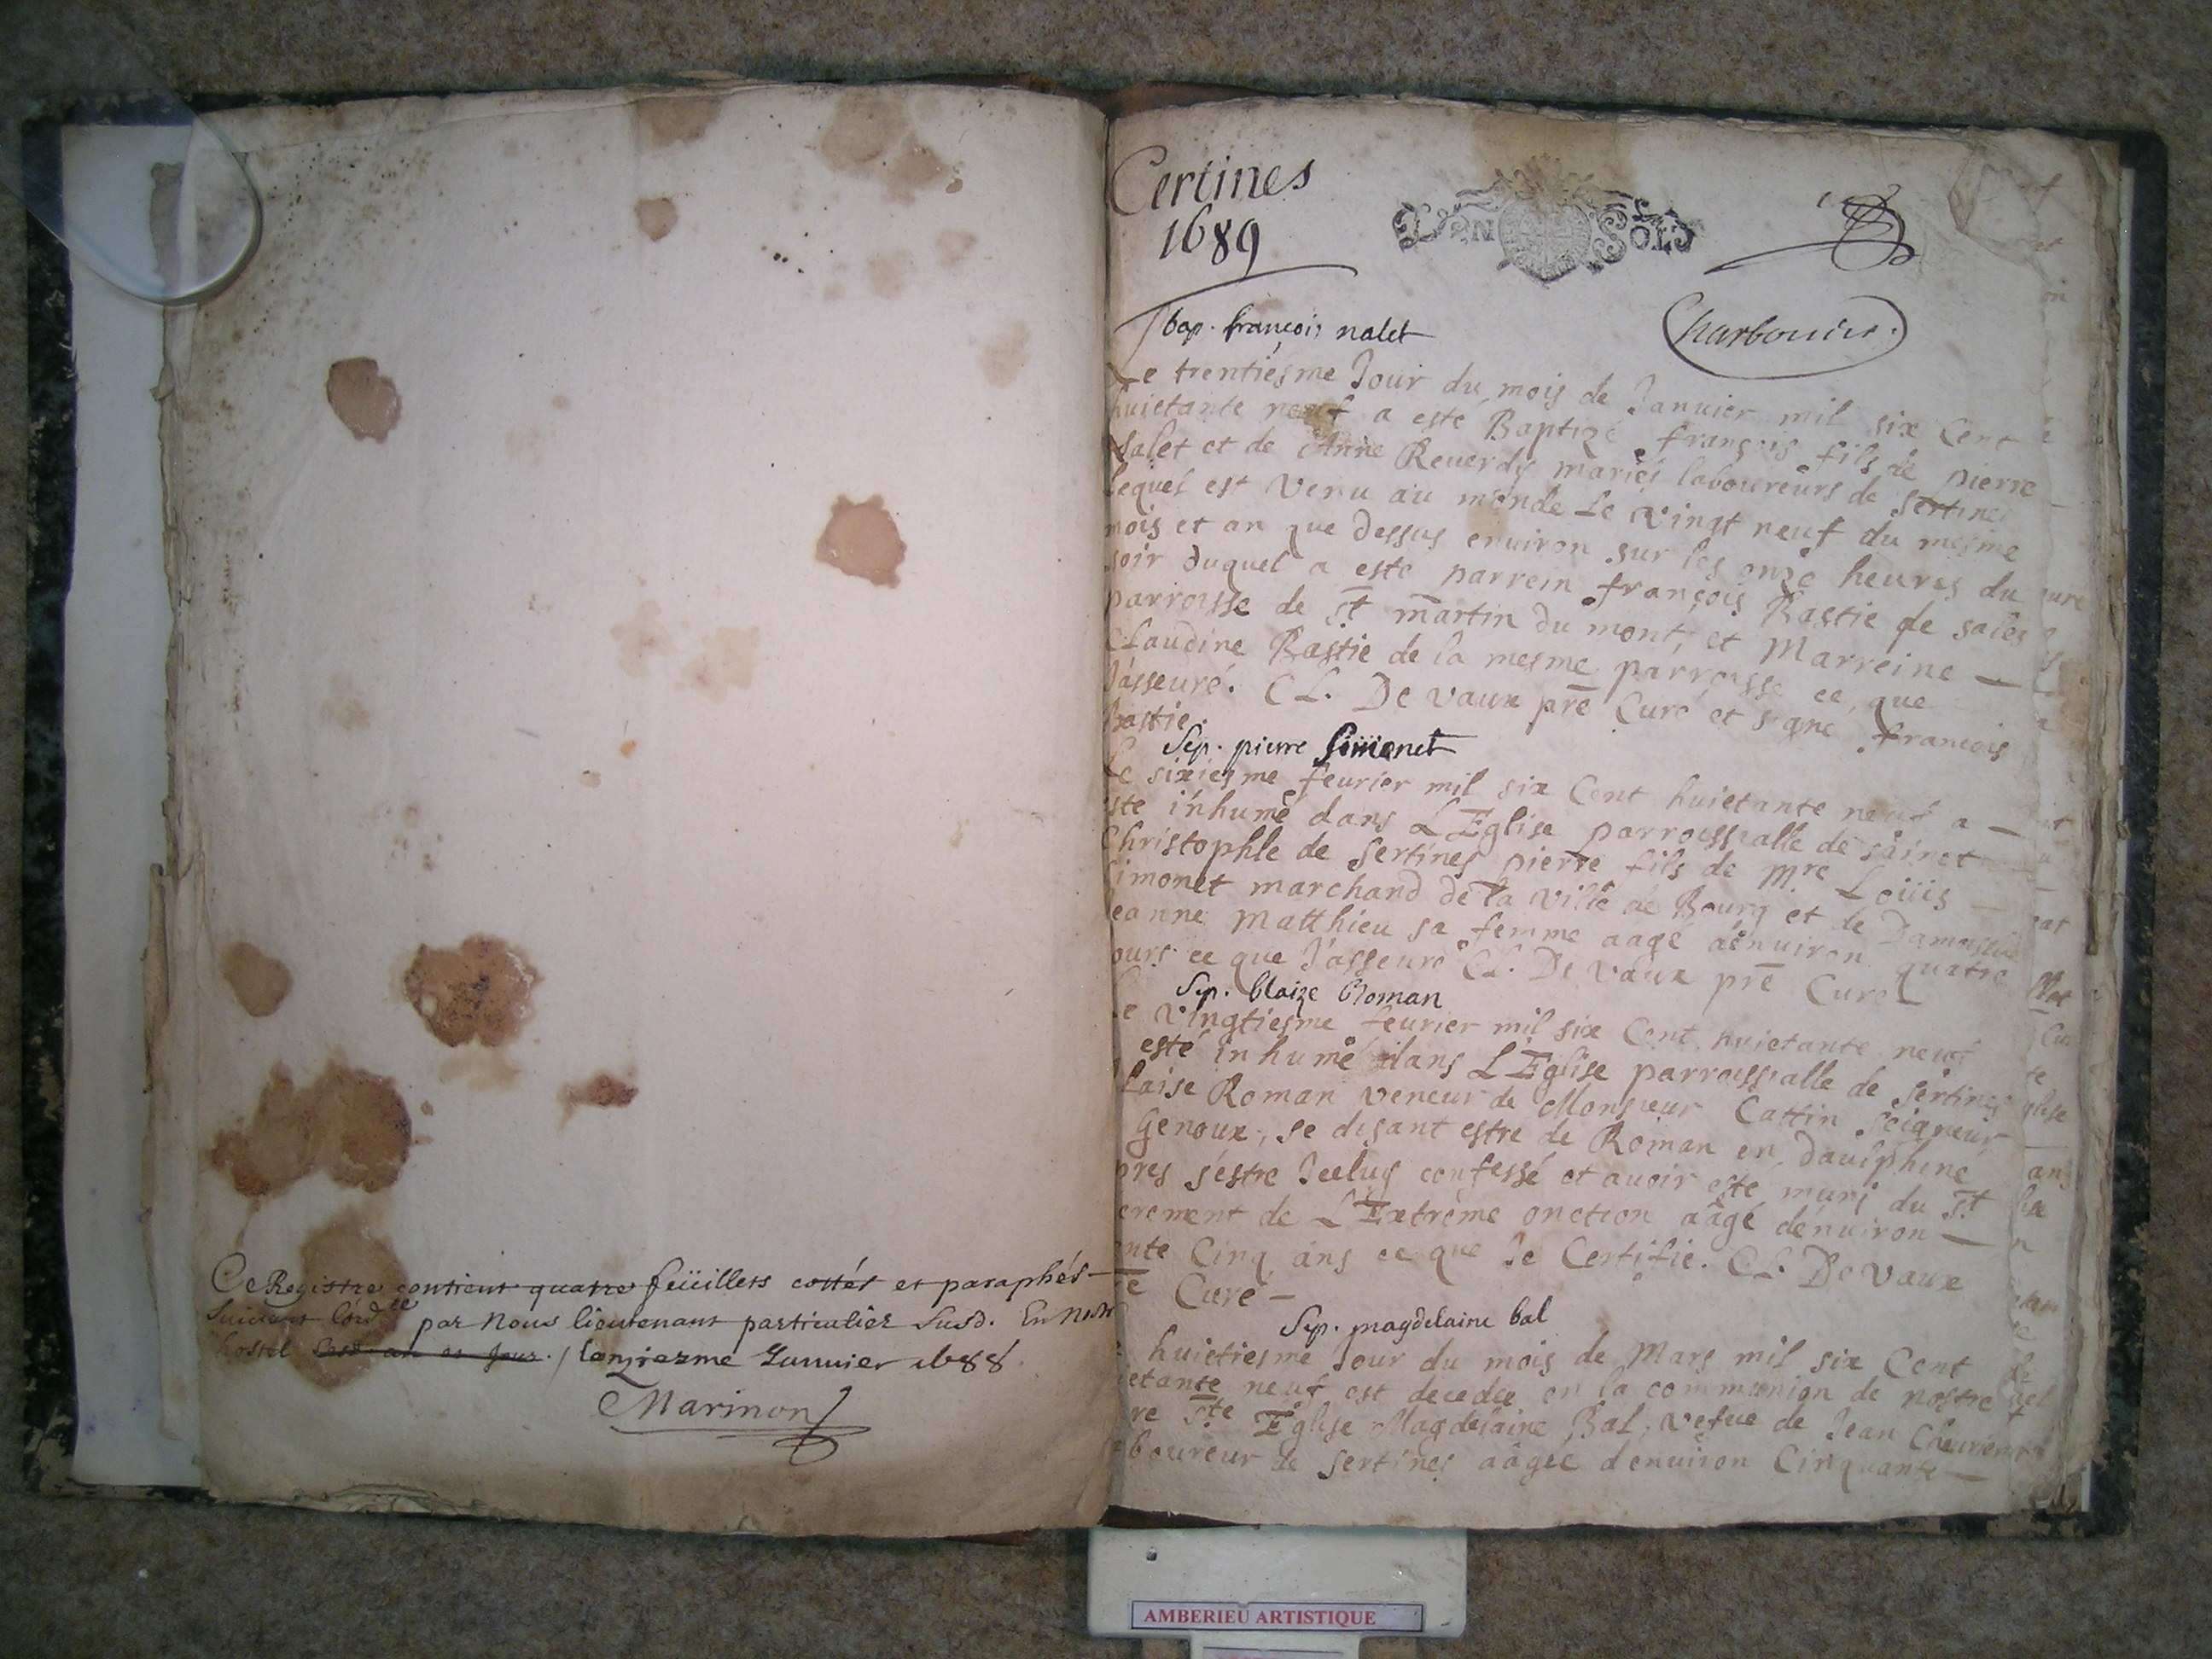 Ce Registre contient quatre feüillets cottés et paraphés
suivant l'ord.ce par Nous lieutenant particulier susd. En nostre
hostel Lesd. an et jour. / Lonziezme Januier 1688.
Marinon
Certines
1689
DEN SOLS
Charbonier.
bap. françois nalet
Le trentiesme Jour du mois de Januier mil six Cent
huictante neuf a esté Baptizé françois fils de pierre
Nalet et de Anne Reuerdy mariés laboureurs de Sertines
lequel est venu au monde le vingt neuf du mesme
mois et an que dessus enuiron sur les onze heures du
soir duquel a esté parrein françois Bastie de sales
parroisse de St martin du mont, et Marreine
Claudine Bastie de la mesme parroisse ce que
J'asseuré. CL. De vaux pre Curé et signé françois
Bastie.
Sep. pierre Simonet
Le sixiesme feurier mil six Cent huictante neuf a
esté inhumé dans L'Eglise parroissialle de sainct
Christophle de Sertines pierre fils de Mre Loüis
Simonet marchand de la ville de Bourg et de Damoiselle
Jeanne Matthieu sa femme aagé d'enuiron quatre
jours ce que J'asseuré CL. De vaux pre Curé
Sep. blaize Roman
Le vingtiesme feurier mil six Cent huictante neuf
esté inhumé dans L'Eglise parroissialle de Sertines
blaise Roman veneur de Monsieur Cattin Seigneur
Genoux, se disant estre de Roman en dauphiné
apres s'estre Jceluy confessé et auoir esté muni du St
crement de L'Extrême onction aâgé d'enuiron
nte Cinq ans ce que Je Certifie. CL. De Vaux
pre Curé
Sep. magdelaine bal
huictiesme Jour du mois de Mars mil six Cent
huictante neuf est decedée en la communion de nostre
mere Ste Eglise Magdelaine Bal, vefue de Jean
laboureur de Sertines aâgée d'enuiron Cinquante